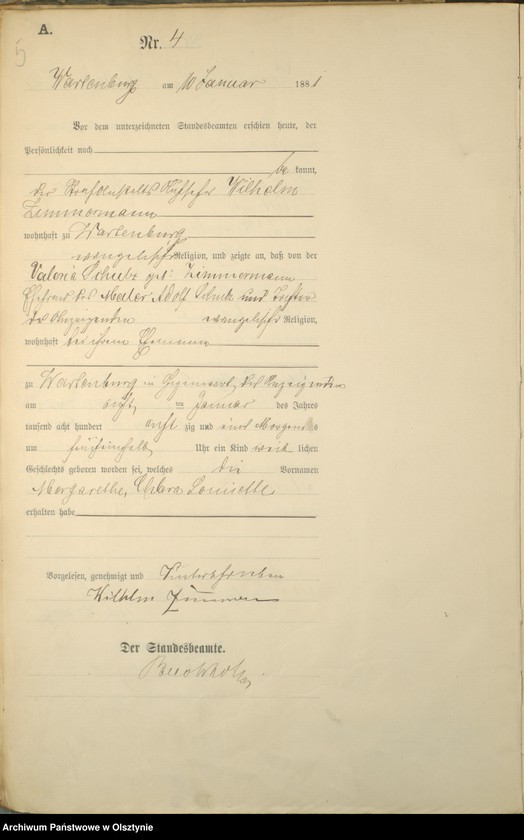 A.
Nr. 4
Wartenburg am 10 Januar 1881
Vor dem unterzeichneten Standesbeamten erschien heute, der
Persönlichkeit nach
be kannt,
der Strafanstalts Aufseher Wilhelm
Zimmermann
wohnhaft zu Wartenburg
evangelischer Religion, und zeigte an, daß von der
Valeria Schulz geb: Zimmermann
Ehefrau des Maler Adolf Schulz und Tochter
des Anzeigenden evangelischer Religion,
wohnhaft bei ihrem Ehemann
zu Wartenburg in Gegenwart des Anzeigenden
am acht ten Januar des Jahres
tausend acht hundert acht zig und eins Morgens
um Uhr ein Kind weib lichen
Geschlechts geboren worden sei, welches die Vornamen
Margarethe, Clara
erhalten habe
Vorgelesen, genehmigt und Unterschrieben
Wilhelm Zimmermann
Der Standesbeamte.
Archiwum Państwowe w Olsztynie